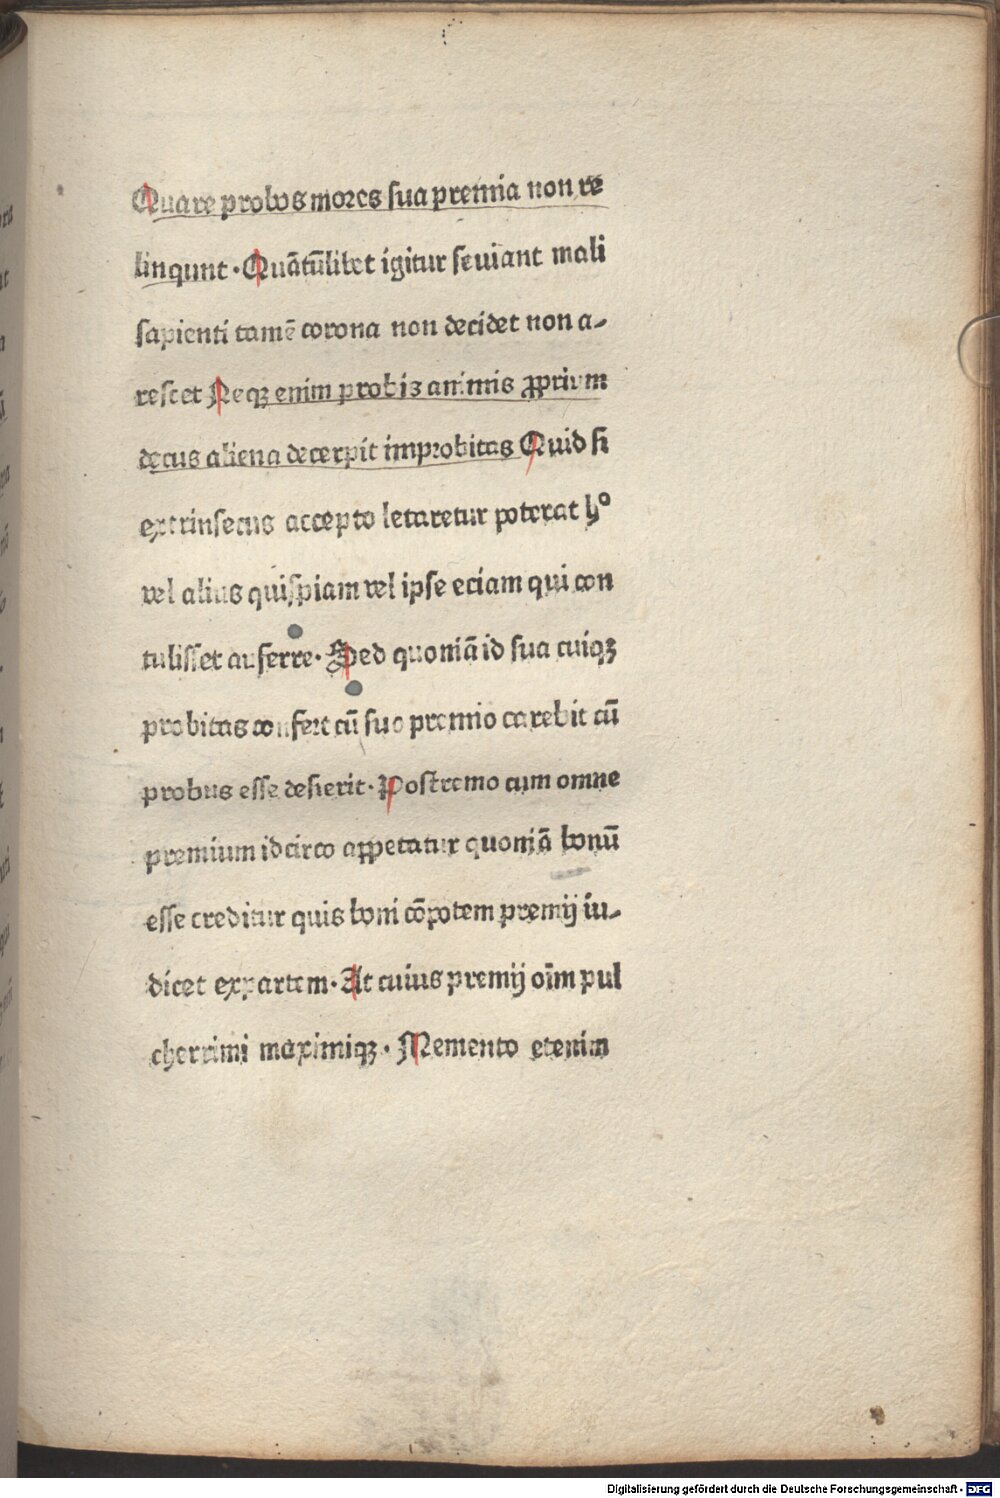 Quare probos mores sua premia non re
linqunt · Quātūlibet igitur seuiant mali
sapienti tamē corona non decidet non a-
rescet Neqꝫ enim probis animis ꝓprium
decus aliena decerpit improbitas Quid si
extrinsecus accepto letaretur poterat hᵒ
vel alius quispiam vel ipse eciam qui con
tulisset auferre · Sed quoniā id sua cuiqꝫ
probitas confert cū suo premio carebit cū
probus esse desierit · Postremo cum omne
premium idcirco appetatur quoniā bonū
esse creditur quis boni cōpotem premij iu-
dicet expartem · At cuius premij oīm pul
cherrimi maximiqꝫ · Memento etenim
Digitalisierung gefördert durch die Deutsche Forschungsgemeinschaft - DFG